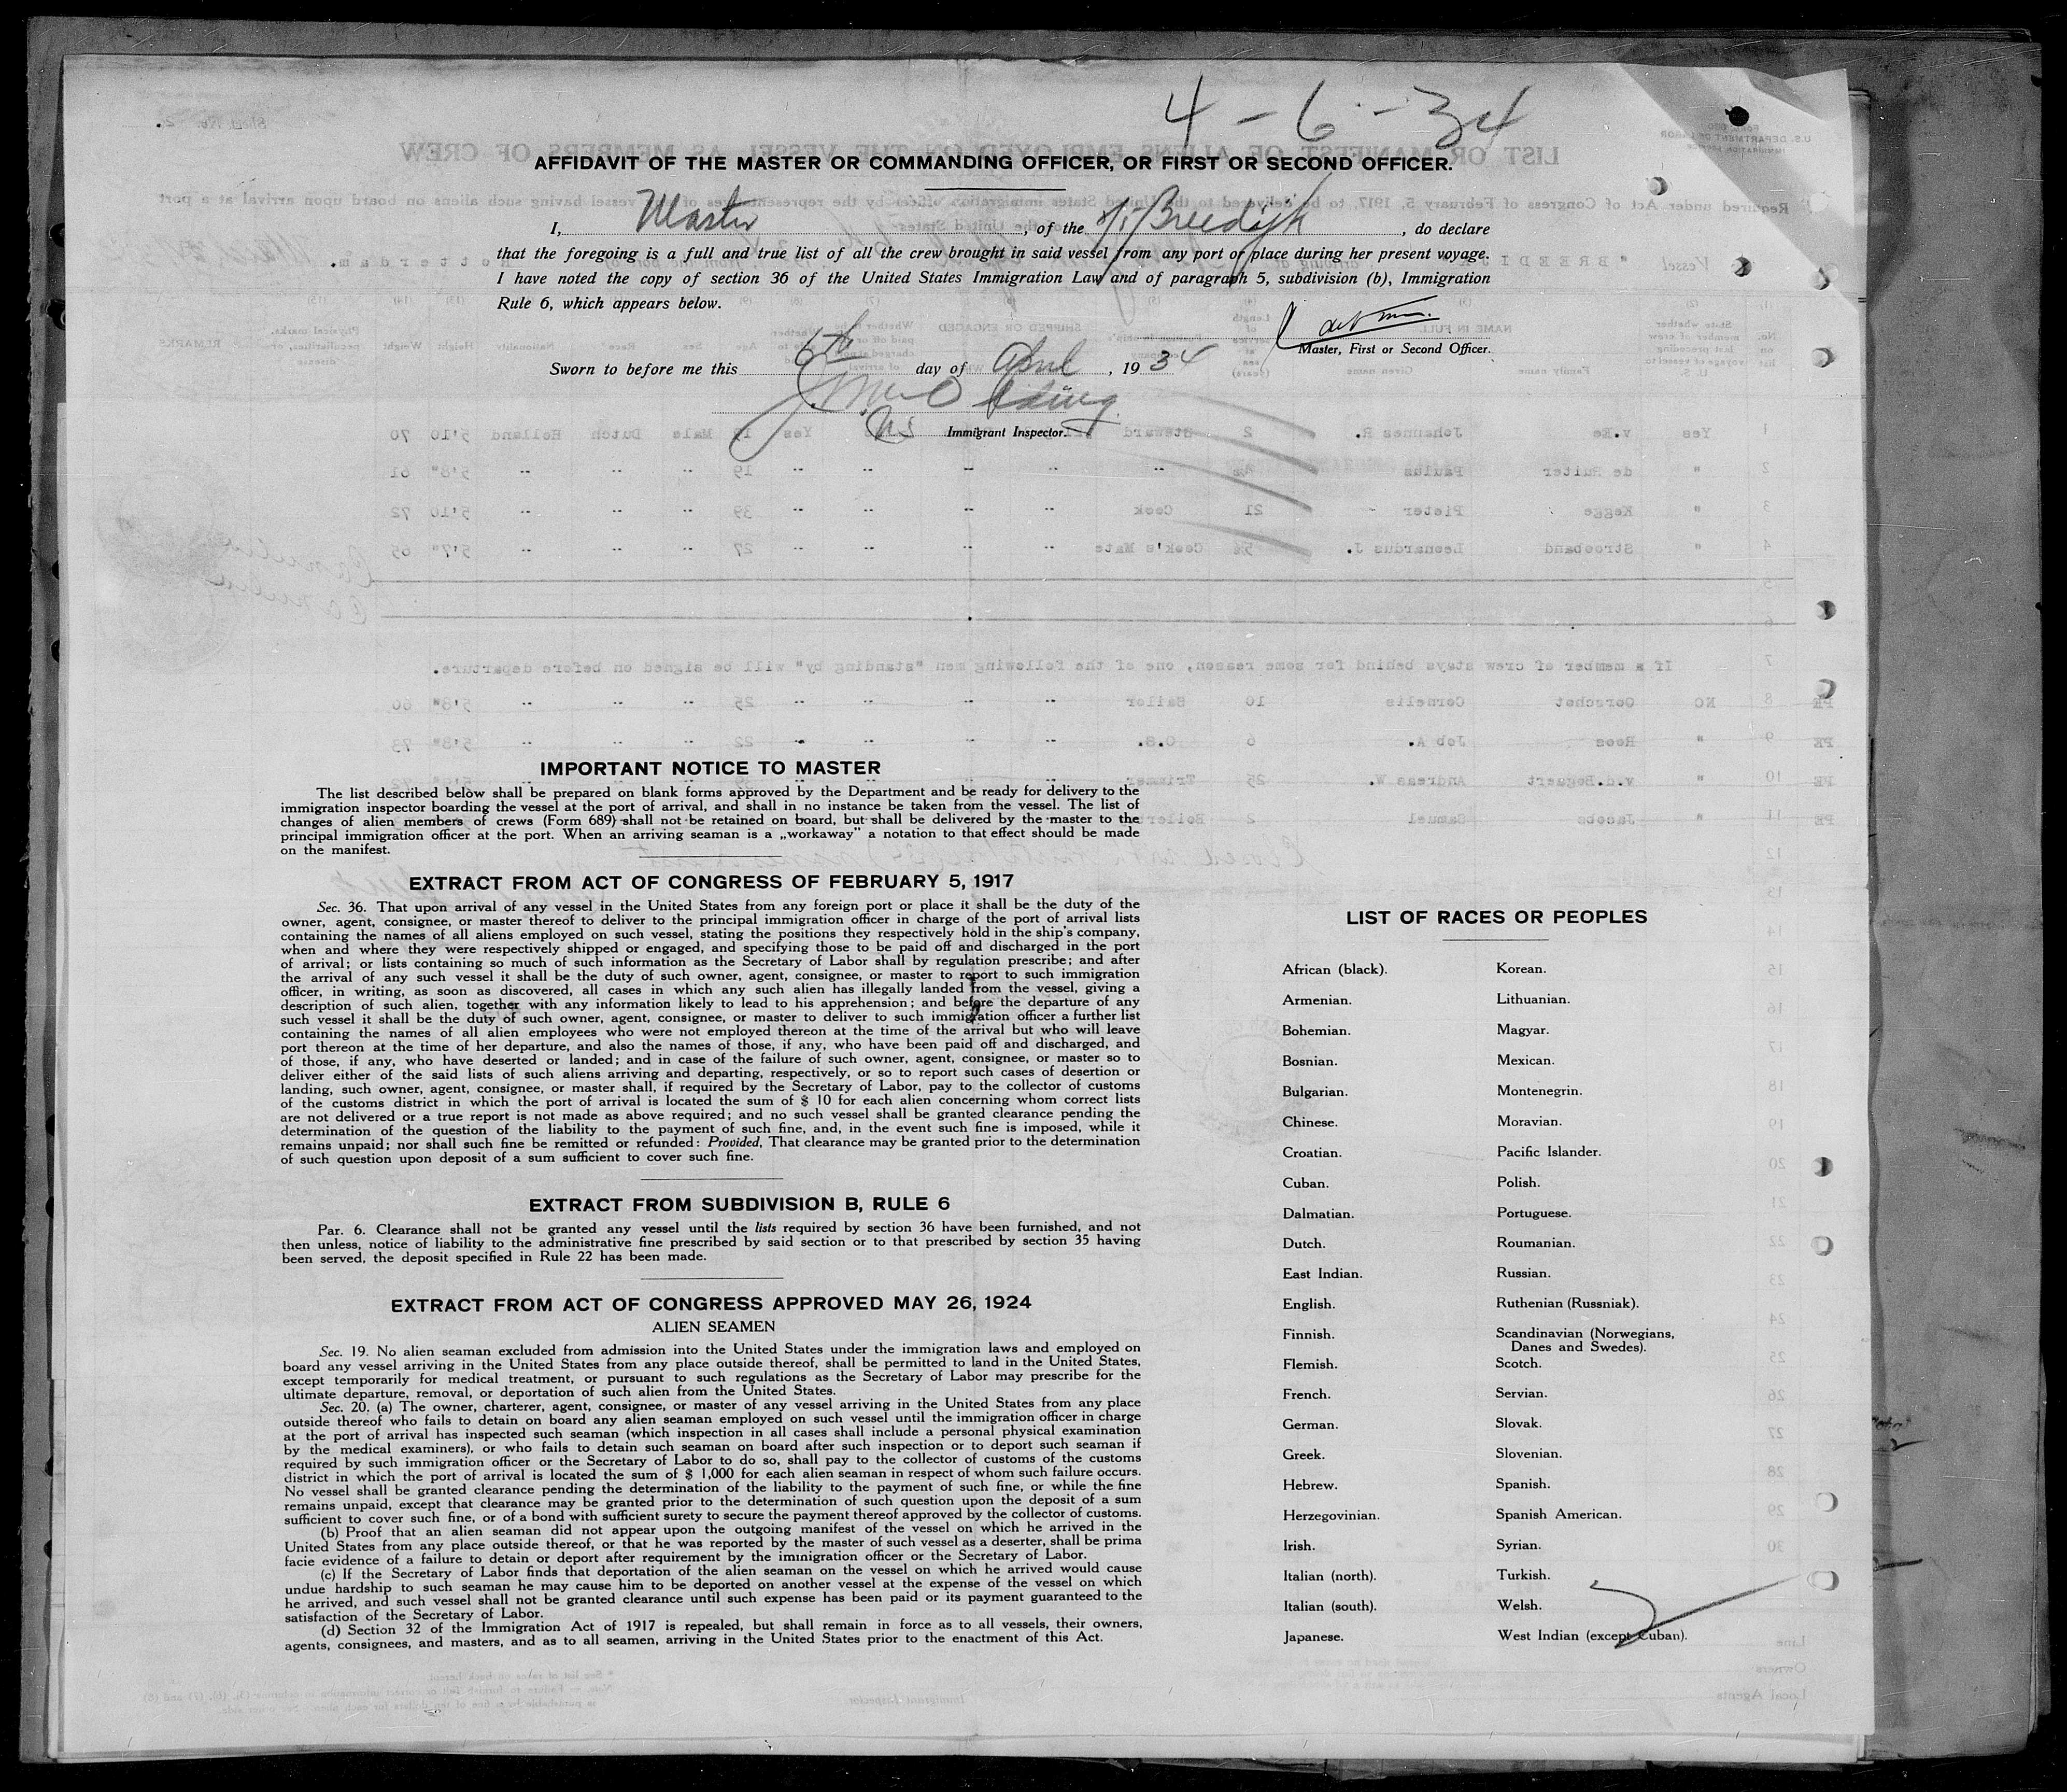 4-6-34
AFFIDAVIT OF THE MASTER OR COMMANDING OFFICER, OR FIRST OR SECOND OFFICER.
I, Master, of the s/s Breedijk, do declare
that the foregoing is a full and true list of all the crew brought in said vessel from any port or place during her present voyage.
I have noted the copy of section 36 of the United States Immigration Law and of paragraph 5, subdivision (b), Immigration
Rule 6, which appears below.
Master, First or Second Officer.
Sworn to before me this 6th day of April, 1934
US Immigrant Inspector.
IMPORTANT NOTICE TO MASTER
The list described below shall be prepared on blank forms approved by the Department and be ready for delivery to the
immigration inspector boarding the vessel at the port of arrival, and shall in no instance be taken from the vessel. The list of
changes of alien members of crews (Form 689) shall not be retained on board, but shall be delivered by the master to the
principal immigration officer at the port. When an arriving seaman is a „workaway" a notation to that effect should be made
on the manifest.
EXTRACT FROM ACT OF CONGRESS OF FEBRUARY 5, 1917
Sec. 36. That upon arrival of any vessel in the United States from any foreign port or place it shall be the duty of the
owner, agent, consignee, or master thereof to deliver to the principal immigration officer in charge of the port of arrival lists
containing the names of all aliens employed on such vessel, stating the positions they respectively hold in the ship's company,
when and where they were respectively shipped or engaged, and specifying those to be paid off and discharged in the port
of arrival; or lists containing so much of such information as the Secretary of Labor shall by regulation prescribe; and after
the arrival of any such vessel it shall be the duty of such owner, agent, consignee, or master to report to such immigration
officer, in writing, as soon as discovered, all cases in which any such alien has illegally landed from the vessel, giving a
description of such alien, together with any information likely to lead to his apprehension; and before the departure of any
such vessel it shall be the duty of such owner, agent, consignee, or master to deliver to such immigration officer a further list
containing the names of all alien employees who were not employed thereon at the time of the arrival but who will leave
port thereon at the time of her departure, and also the names of those, if any, who have been paid off and discharged, and
of those, if any, who have deserted or landed; and in case of the failure of such owner, agent, consignee, or master so to
deliver either of the said lists of such aliens arriving and departing, respectively, or so to report such cases of desertion or
landing, such owner, agent, consignee, or master shall, if required by the Secretary of Labor, pay to the collector of customs
of the customs district in which the port of arrival is located the sum of $ 10 for each alien concerning whom correct lists
are not delivered or a true report is not made as above required; and no such vessel shall be granted clearance pending the
determination of the question of the liability to the payment of such fine, and, in the event such fine is imposed, while it
remains unpaid; nor shall such fine be remitted or refunded: Provided, That clearance may be granted prior to the determination
of such question upon deposit of a sum sufficient to cover such fine.
EXTRACT FROM SUBDIVISION B, RULE 6
Par. 6. Clearance shall not be granted any vessel until the lists required by section 36 have been furnished, and not
then unless, notice of liability to the administrative fine prescribed by said section or to that prescribed by section 35 having
been served, the deposit specified in Rule 22 has been made.
EXTRACT FROM ACT OF CONGRESS APPROVED MAY 26, 1924
ALIEN SEAMEN
Sec. 19. No alien seaman excluded from admission into the United States under the immigration laws and employed on
board any vessel arriving in the United States from any place outside thereof, shall be permitted to land in the United States,
except temporarily for medical treatment, or pursuant to such regulations as the Secretary of Labor may prescribe for the
ultimate departure, removal, or deportation of such alien from the United States.
Sec. 20. (a) The owner, charterer, agent, consignee, or master of any vessel arriving in the United States from any place
outside thereof who fails to detain on board any alien seaman employed on such vessel until the immigration officer in charge
at the port of arrival has inspected such seaman (which inspection in all cases shall include a personal physical examination
by the medical examiners), or who fails to detain such seaman on board after such inspection or to deport such seaman if
required by such immigration officer or the Secretary of Labor to do so, shall pay to the collector of customs of the customs
district in which the port of arrival is located the sum of $ 1,000 for each alien seaman in respect of whom such failure occurs.
No vessel shall be granted clearance pending the determination of the liability to the payment of such fine, or while the fine
remains unpaid, except that clearance may be granted prior to the determination of such question upon the deposit of a sum
sufficient to cover such fine, or of a bond with sufficient surety to secure the payment thereof approved by the collector of customs.
(b) Proof that an alien seaman did not appear upon the outgoing manifest of the vessel on which he arrived in the
United States from any place outside thereof, or that he was reported by the master of such vessel as a deserter, shall be prima
facie evidence of a failure to detain or deport after requirement by the immigration officer or the Secretary of Labor.
(c) If the Secretary of Labor finds that deportation of the alien seaman on the vessel on which he arrived would cause
undue hardship to such seaman he may cause him to be deported on another vessel at the expense of the vessel on which
he arrived, and such vessel shall not be granted clearance until such expense has been paid or its payment guaranteed to the
satisfaction of the Secretary of Labor.
(d) Section 32 of the Immigration Act of 1917 is repealed, but shall remain in force as to all vessels, their owners,
agents, consignees, and masters, and as to all seamen, arriving in the United States prior to the enactment of this Act.
LIST OF RACES OR PEOPLES
African (black).
Armenian.
Bohemian.
Bosnian.
Bulgarian.
Chinese.
Croatian.
Cuban.
Dalmatian.
Dutch.
East Indian.
English.
Finnish.
Flemish.
French.
German.
Greek.
Hebrew.
Herzegovinian.
Irish.
Italian (north).
Italian (south).
Japanese.
Korean.
Lithuanian.
Magyar.
Mexican.
Montenegrin.
Moravian.
Pacific Islander.
Polish.
Portuguese.
Roumanian.
Russian.
Ruthenian (Russniak).
Scandinavian (Norwegians,
Danes and Swedes).
Scotch.
Servian.
Slovak.
Slovenian.
Spanish.
Spanish American.
Syrian.
Turkish.
Welsh.
West Indian (except Cuban).